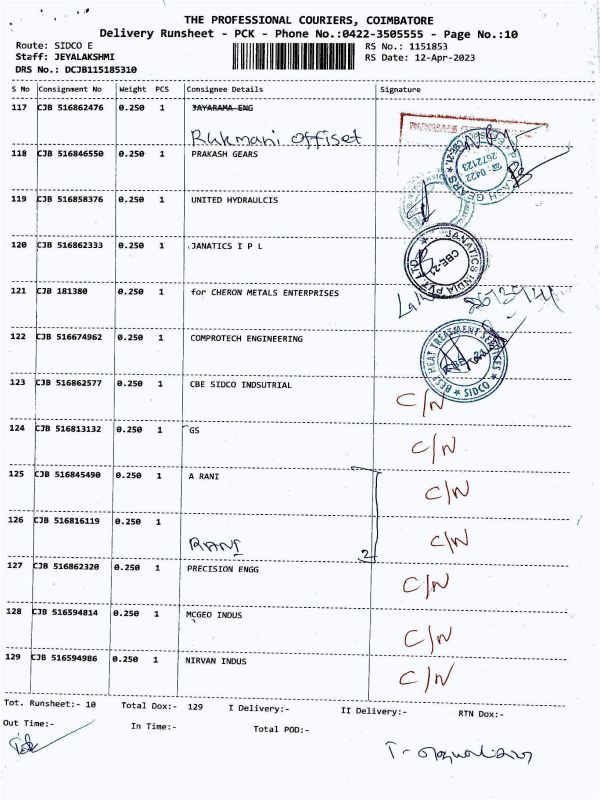 THE PROFESSIONAL COURIERS, COIMBATORE
Delivery Runsheet - PCK - Phone No.:0422-3505555 - Page No.:10
Route: SIDCO E
RS No.: 1151853
Staff: JEYALAKSHMI
RS Date: 12-Apr-2023
DRS No.: DCJB115185310
S No Consignment No Weight PCS Consignee Details Signature
117 CJB 516862476 0.250 1 JAYARAMA ENG
Rukmani offiset
118 CJB 516846550 0.250 1 PRAKASH GEARS
0422
2672123
CBE-21.
119 CJB 516858376 0.250 1 UNITED HYDRAULCIS
120 CJB 516862333 0.250 1 JANATICS I P L
JANATICS INDIA PVT LTD
CBE-21
121 CJB 181380 0.250 1 for CHERON METALS ENTERPRISES
122 CJB 516674962 0.250 1 COMPROTECH ENGINEERING
BEST HEAT TREATMENT SERVICES
SIDCO
123 CJB 516862577 0.250 1 CBE SIDCO INDSUTRIAL
C/N
124 CJB 516813132 0.250 1 GS
C/N
125 CJB 516845490 0.250 1 A RANI
C/N
126 CJB 516816119 0.250 1
RANI
2
C/N
127 CJB 516862320 0.250 1 PRECISION ENGG
C/N
128 CJB 516594814 0.250 1 MCGEO INDUS
C/N
129 CJB 516594986 0.250 1 NIRVAN INDUS
C/N
Tot. Runsheet:- 10 Total Dox:- 129 I Delivery:- II Delivery:- RTN Dox:-
Out Time:- In Time:- Total POD:-